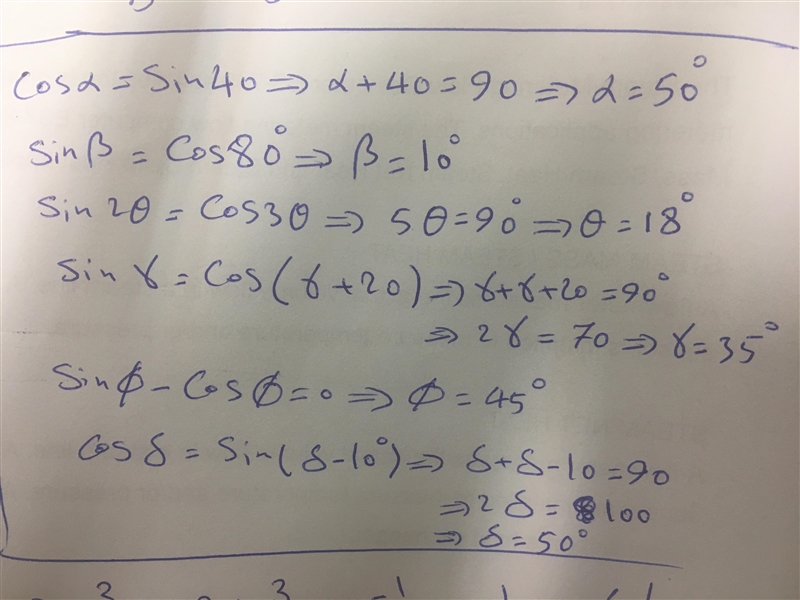 Cosα = Sin40 ⇒ α+40=90 ⇒ α=50°
Sinβ = Cos80° ⇒ β=10°
Sin2θ = Cos3θ ⇒ 5θ=90° ⇒ θ=18°
Sinɣ = Cos(ɣ+20) ⇒ ɣ+ɣ+20=90°
⇒ 2ɣ=70 ⇒ ɣ=35°
Sinϕ - Cosϕ=0 ⇒ ϕ=45°
Cosδ = Sin(δ-10°) ⇒ δ+δ-10=90
⇒ 2δ=100
⇒ δ=50°